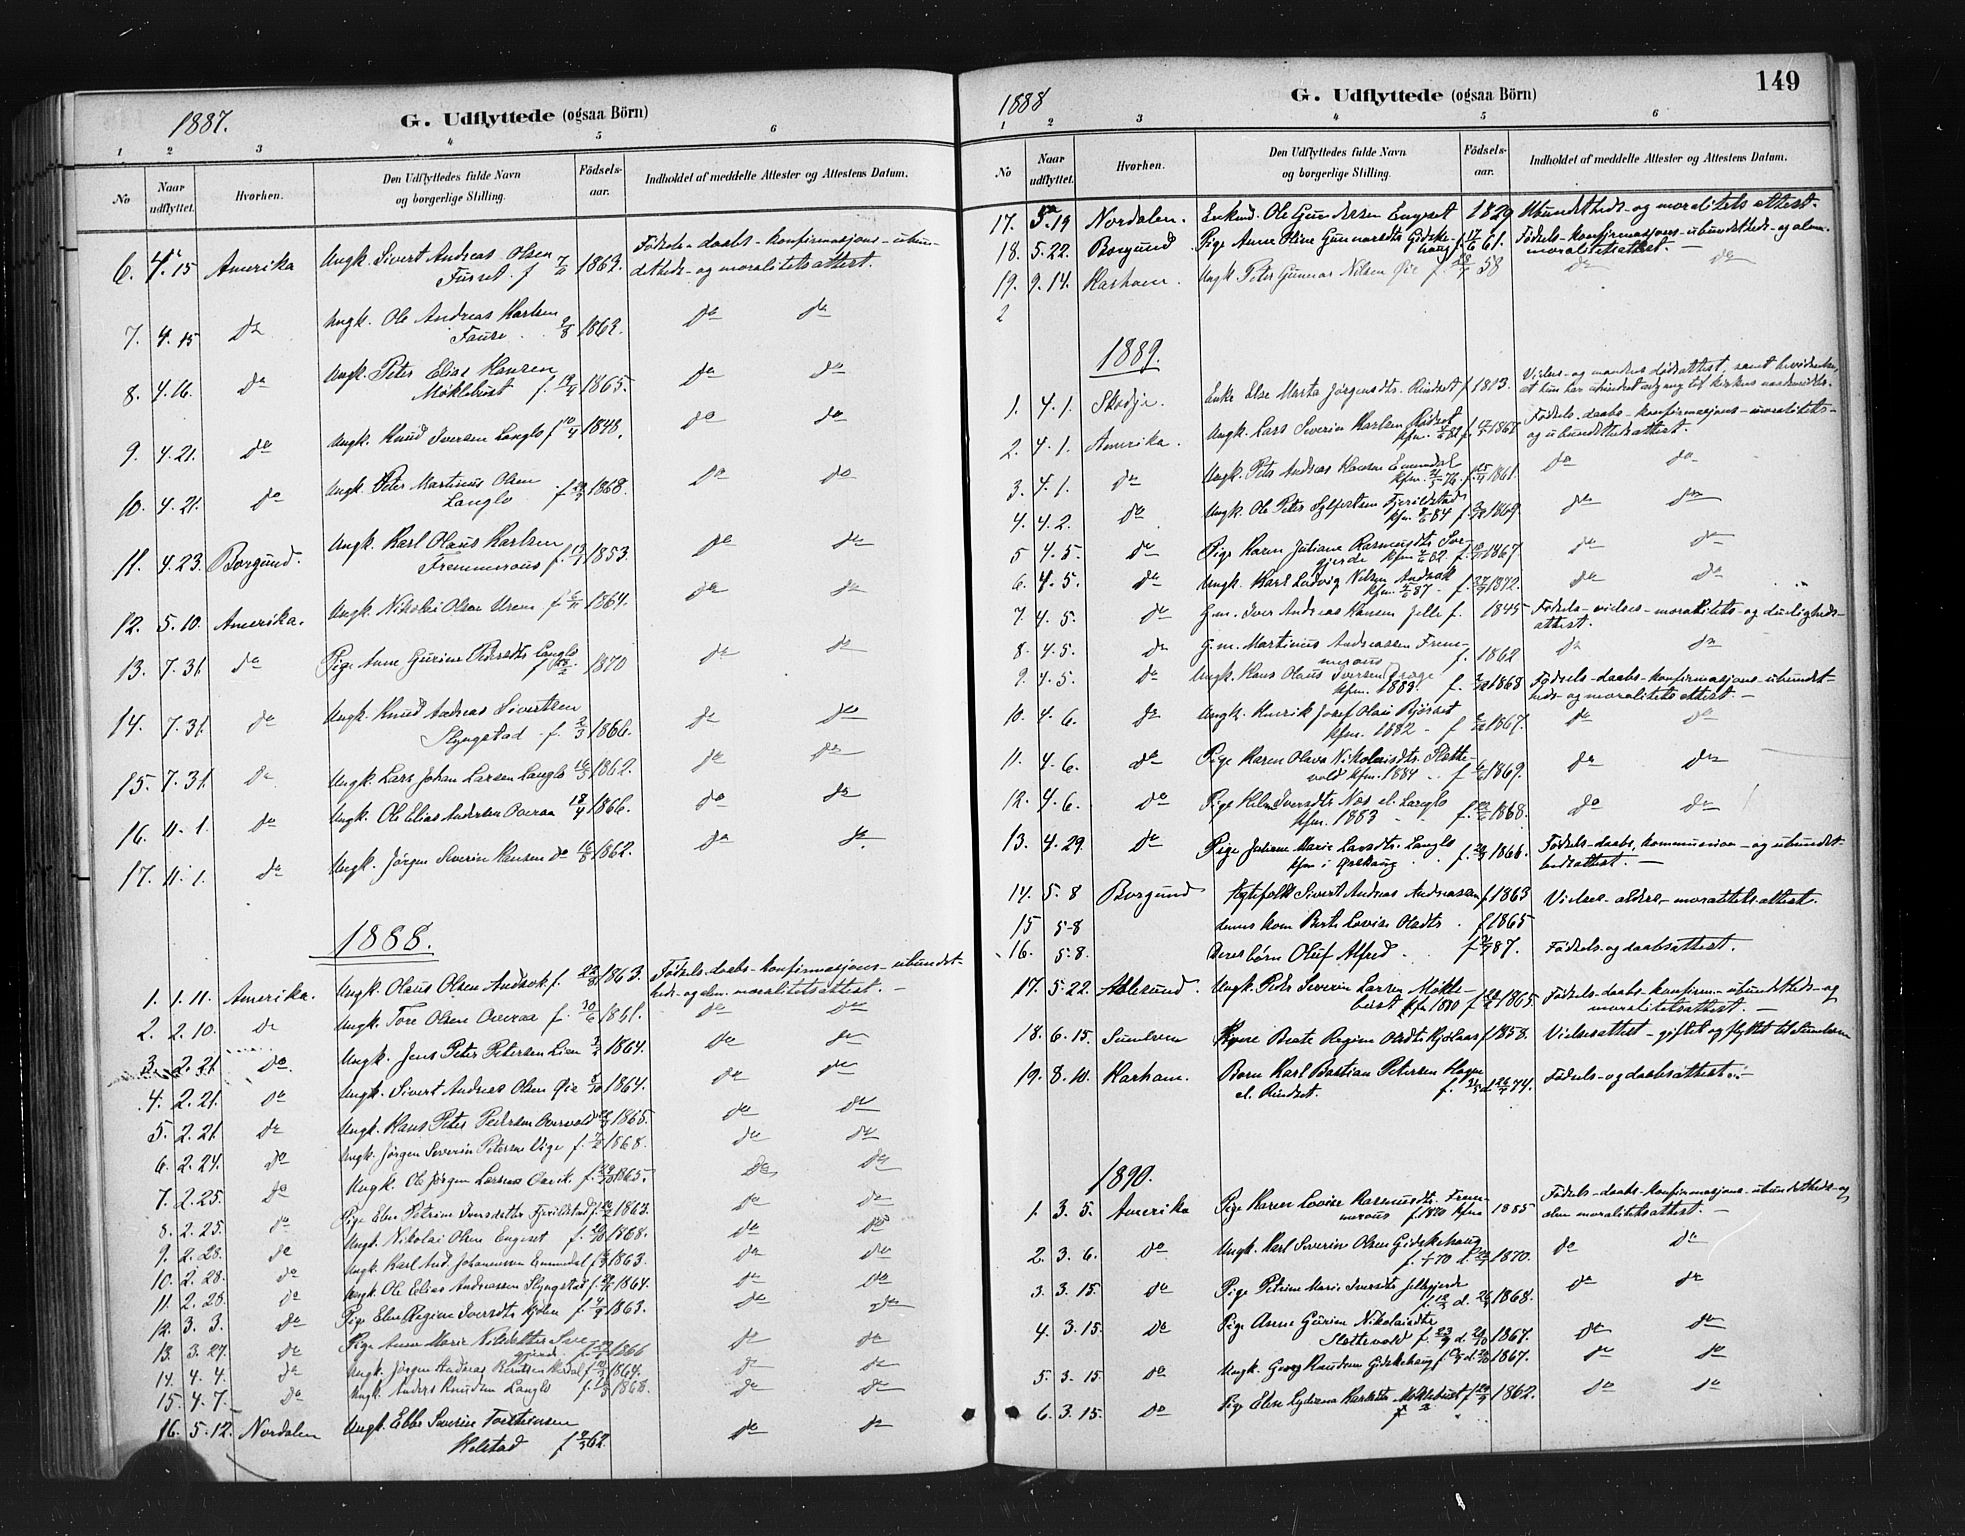 1887.
G. Udflyttede (ogsaa Börn)
1 2 3 4 5 6
No
Naar udflyttet.
Hvorhen.
Den Udflyttedes fulde Navn og borgerlige Stilling.
Födsels-aar.
Indholdet af meddelte Attester og Attestens Datum.
6. 4. 15 Amerika Ungk. Sivert Andreas Olsen 1863. Födsels- daabs- konfirmasjons- ubun-
f. detheds- og moralitetsattest.
7. 4. 15 do Ungk. Ole Andreas Karlsen do do
2/8 1862.
8. 4. 16. do Ungk. Peter Elias Hansen do do
Möklebust f. 1865.
9. 4. 21. do Ungk. Knud Iversen Langlo f. 1848. do do
10. 4. 21. do Ungk. Peter Martinus Olsen do do
Langlo f. 1868.
11. 4. 23. Borgund. Ungk. Karl Olaus Karlsen do do
Fremmerous f. 1853.
12. 5. 10. Amerika. Ungk. Nikolai Olsen Uren f. 1864. do do
13. 7. 31. do Pige Anne Gurine Pedersdtr Langlo do do
f. 1870
14. 7. 31. do Ungk. Knud Andreas Sivertsen do do
Slyngstad f. 2/3 1866.
15. 7. 31. do Ungk. Lars Johan Larsen Langlo 1862. do do
16. 11. 1. do Ungk. Ole Elias Andersen Overaa 18/4 1866. do do
17. 11. 1. do Ungk. Jörgen Severin Hansen do 16/8 1862. do do
1888.
1. 1. 11. Amerika. Ungk. Olaus Olsen Andsok f. 1863. Födsels- daabs- konfirmasjons- ubundet-
heds- og alm. moralitetsattest. —
2. 2. 10. do Ungk. Tore Olsen Overaa f. 30/6 1861. do do
3. 2. 21. do Ungk. Jens Peter Petersen Lien 1864. do do
4. 2. 21. do Ungk. Sivert Andreas Olsen Öie 1864. do do
5. 2. 21. do Ungk. Hans Peter Pedersen 1865. do do
6. 2. 24. do Ungk. Jörgen Severin Petersen f. 1868. do do
7. 2. 25. do Ungk. Ole Jörgen Larsen f. 1865. do do
8. 2. 25. do Pige Eline Petrine Iversdatter Fjerildstad f. 1863. do do
9. 2. 28. do Ungk. Nikolai Olsen Engeset f. 1868. do do
10. 2. 28. do Ungk. Karl And. Johannesen f. 1863. do do
11. 2. 28. do Ungk. Ole Elias Andreassen Slyngstad f. 1864. do do
12. 3. 3. do Pige Eline Regine Iversdtr f. 1863. do do
13. 3. 27. do Pige Anne Marie f. 1866 do do
14. 4. 4. do Ungk. Jörgen Andreas Berntsen f. 1864. do do
15. 4. 7. do Ungk. Anders Knudsen Langlo f. 1868. do do
16. 5. 12. Nordalen Ungk. Ebbe Severin Torstensen do do
f. 62.
1888
G. Udflyttede (ogsaa Börn)
149
1 2 3 4 5 6
No
Naar udflyttet.
Hvorhen.
Den Udflyttedes fulde Navn og borgerlige Stilling.
Födsels-aar.
Indholdet af meddelte Attester og Attestens Datum.
17. 5. 19 Nordalen. Enkmd. Ole Gundersen Engeset 1829 Ubundetheds- og moralitetsattest.
18. 5. 22. Borgund Pige Anne Oline Gunnarsdtr Gidske-
haug f. 17/6 61. Födsels- konfirmasjons- ubundetheds- og alm.
moralitetsattest. —
19. 9. 14. Harham. Ungk. Peter Gunnar Nilsen Öie f. 58 do do
2
1889.
1. 4. 1. Skodje. Enke Else Marta Jörgensdtr. Rindset f. 1813. Vielses- og mandens dödsattest, samt bevidnelse,
at hun har uhindret adgang til kirkens naademidler.
2. 4. 1. Amerika. Ungk. Lars Severin Karlsen Rödset Födsels- daabs- konfirmasjons- moralitets-
kfm. 82 f. 1867 og ubundethedsattest.
3. 4. 1. do Ungk. Peter Andreas Hansen do do
kfm. 76 f. 1861.
4. 4. 2. do Ungk. Ole Peter Sylfestsen Fjerildstad do do
kfm. 84 f. 1869
5 4. 5. do Pige Karen Juliane Rasmusdtr Sor-
gjerde kfm. 82. f. 1867 do do
6. 4. 5. do Ungk. Karl Ludvig Nilsen Andsok do do
kfm. 87 f. 1872.
7. 4. 5. do G.m. Iver Andreas Hansen Jelle f. 1845 Födsels- vielses- moralitets- og dueligheds-
attest.
8. 4. 5. do G.m. Martinus Andreassen Frem-
merous f. 1862 do do
9. 4. 5. do Ungk. Hans Olaus Iversen Födsels- daabs- konfirmasjons- ubundet-
kfm. 1883. f. 1868 heds- og moralitetsattest. —
10. 4. 6. do Ungk. Henrik Josef Olsen do do
kfm. 1882 - f. 1867.
11. 4. 6. do Pige Karen Olava Nikolaisdtr. Slette-
vold kfm. 1884 f. 1869. do do
12. 4. 6. do Pige Iversdtr Nos el. Langlo
kfm. 1883 f. 1868. do do
13. 4. 29. do Pige Juliane Marie Larsdtr. Langlo Födsels- daabs, kommunion- og ubundet-
kfm. i f. 1866. hedsattest. —
14. 5. 8 Borgund Ægtefolk Sivert Andreas Andreassen f. 1863 Vielses- alders- moralitetsattest.
15 5-8 dennes kone Berte Lovise Olsdtr. f. 1865
16. 5. 8. Deres börn Oluf Alfred f. 87. Födsels- og daabsattest. —
17. 5. 22. Aalesund. Ungk. Peder Severin Larsen Mökle-
bust kfm. 1880 f. 1865. Födsels- daabs- konfirm.- ubundetheds- og
moralitetsattest. —
18. 6. 15. Sunelven Beate Regine Olsdtr f. 1858. Vielsesattest - giftet og flyttet til Sunelven
19. 8. 10. Harham. Barn Karl Bastian Petersen Födsels- og daabsattest. —
el. Rindset. f. 74.
1890.
1. 3. 5. Amerika Pige Karen Lovise Rasmusdtr. Frem-
merous f. 1870 kfm 1885 Födsels- daabs- konfirmasjons- ubundetheds- og
alm moralitetsattest. —
2. 3. 6. do Ungk. Karl Severin Olsen Gidskehaug do do
f. 70 d. 1870.
3. 3. 15. do Pige Petrine Marie Iversdtr Jellegjerde do do
f. d. 1868.
4. 3. 15. do Pige Anne Gurine Nikolaisdtr
Slettevold f. d. 1867. do do
5. 3. 15. do Ungk. Georg Knudsen Gidskehaug f. d. 1867. do do
6. 3. 15. do Pige Else Möklebust f. 1862. do do